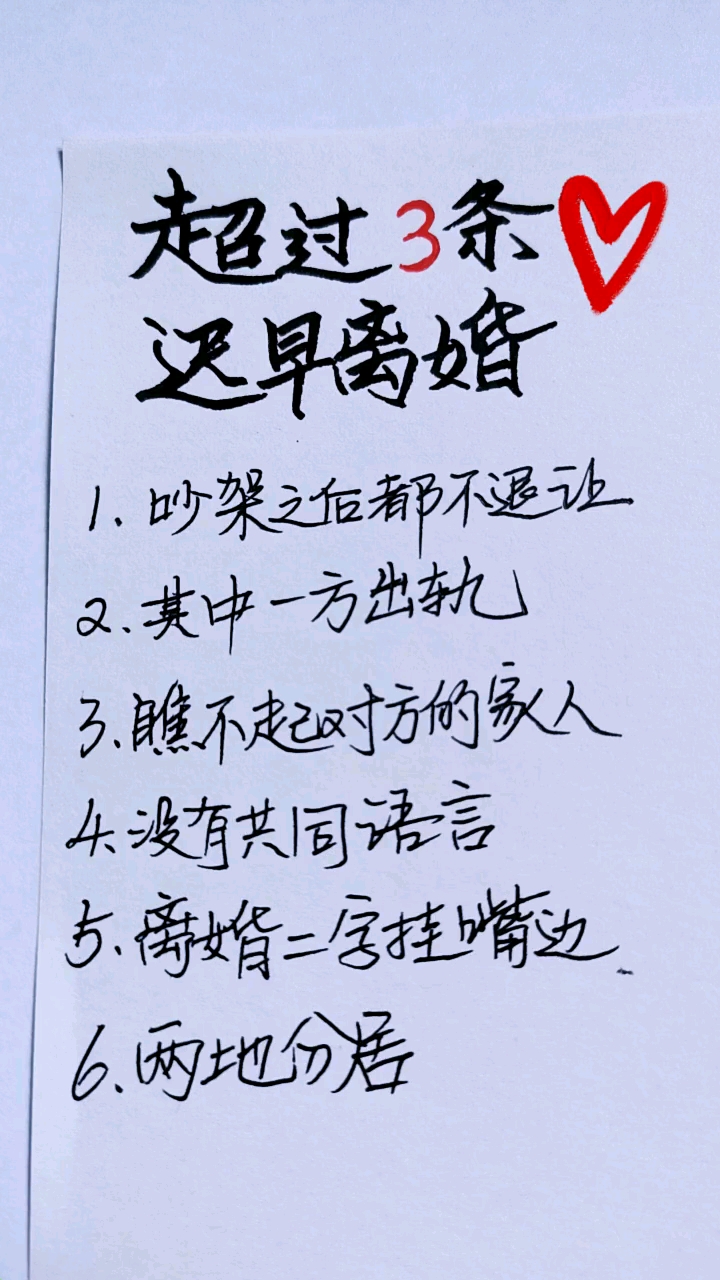 超过3条
迟早离婚
1. 吵架之后都不退让
2. 其中一方出轨
3. 瞧不起对方的家人
4. 没有共同语言
5. 离婚二字挂嘴边
6. 两地分居